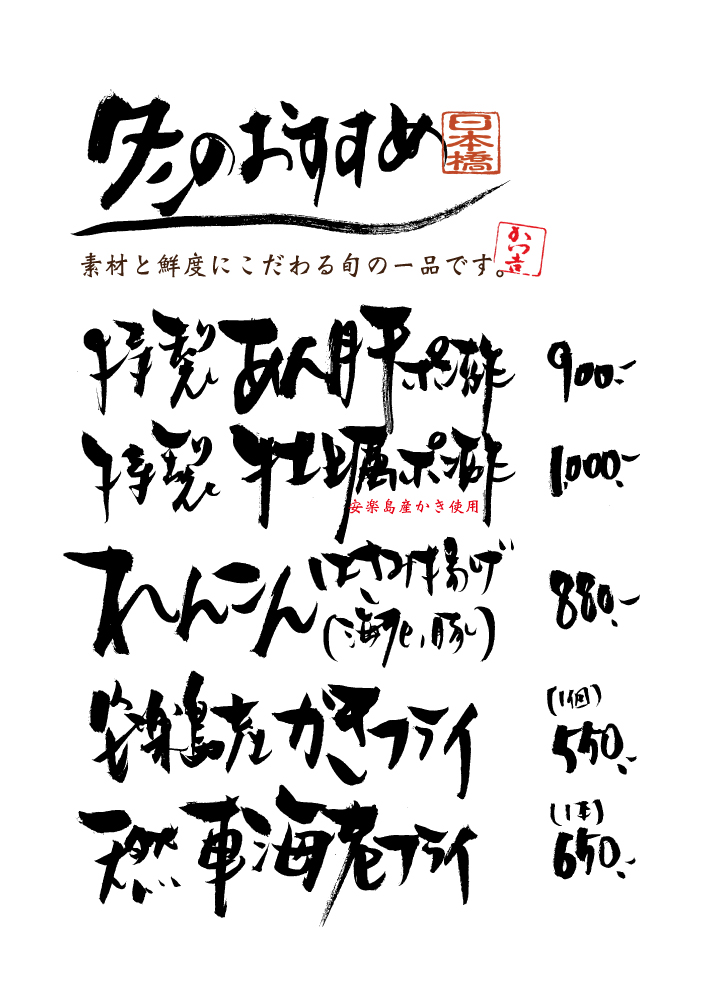 冬のおすすめ 日本橋
素材と鮮度にこだわる旬の一品です。 かつ吉
特製 あん肝ポン酢 900.-
特製 牡蠣ポン酢 1,000.-
安楽島産かき使用
れんこんはさみ揚げ 880.-
(海老、豚)
(1個)
安楽島産 かきフライ 550.-
(1本)
天然 車海老フライ 650.-